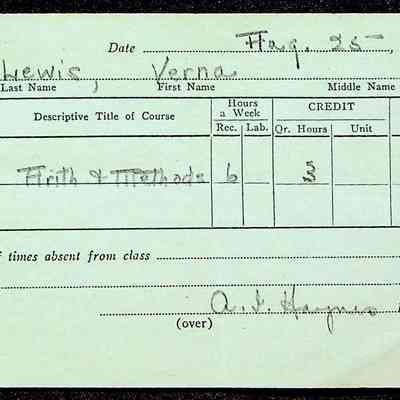 Date Aug. 25-
Lewis, Verna
Last Name First Name Middle Name
Descriptive Title of Course Hours a Week CREDIT
Rec. Lab. Qr. Hours Unit
Arith & Methods 6 3
f times absent from class
A. I. Haynes
(over)